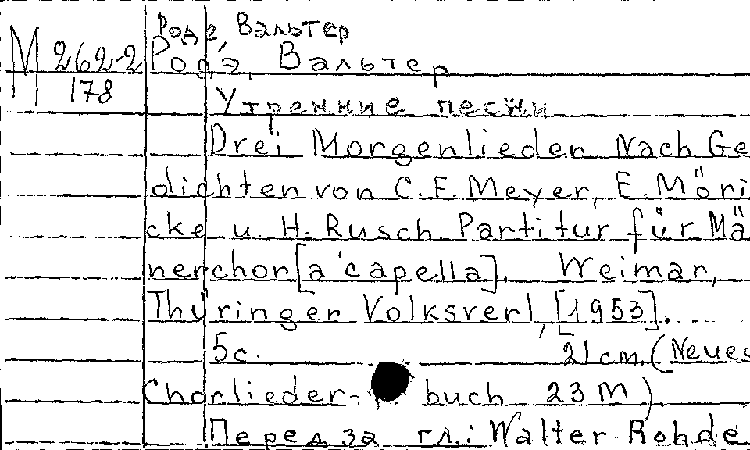 Родэ Вальтер
М 262-2 Родэ, Вальтер
178
Утренние песни
Drei Morgenlieder Nach Ge
dichten von C. F. Meyer, E. Möri
cke u. H. Rusch Partitur für Mä
nerchor [a'capella]. Weimar,
Thüringer Volksverl, [1953].
5 с. 21 cm. (Neues
Chorlieder- buch 23 M)
Перед за гл.: Walter Rohde